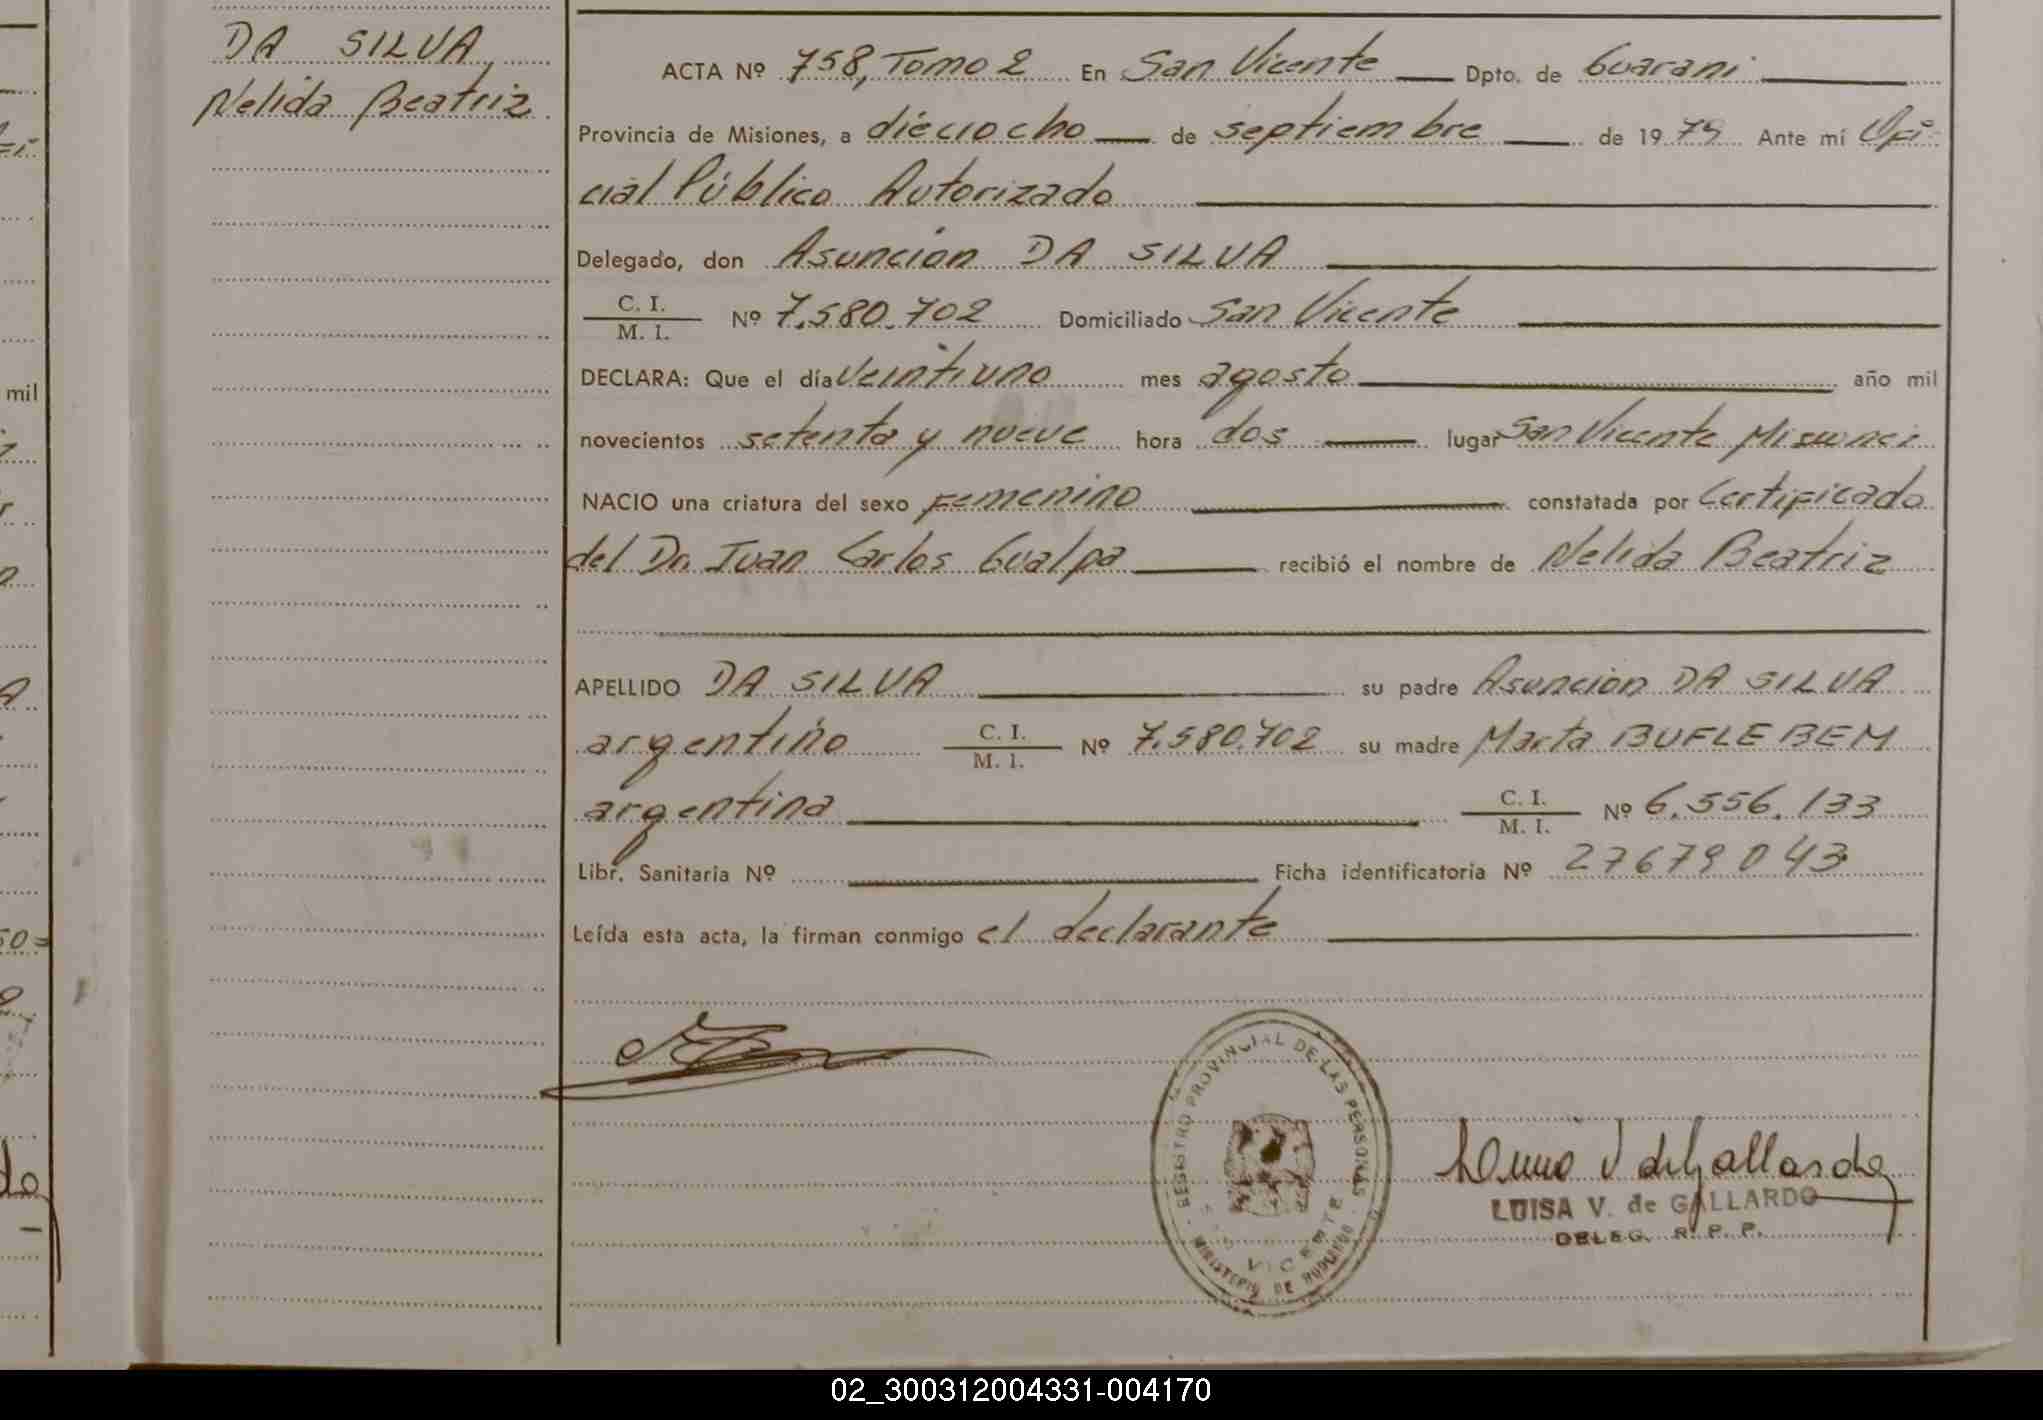 DA SILVA,
Nelida Beatriz
ACTA Nº 758, Tomo 2 En San Vicente Dpto. de Guarani
Provincia de Misiones, a dieciocho de septiembre de 1979 Ante mí Ofi-
cial Público Autorizado
Delegado, don Asunción DA SILVA
C. I.
M. I. Nº 7.580.702 Domiciliado San Vicente
DECLARA: Que el día veintiuno mes agosto año mil
novecientos setenta y nueve hora dos lugar San Vicente Misiones
NACIO una criatura del sexo femenino constatada por Certificado
del Dr. Juan Carlos Gualpa recibió el nombre de Nelida Beatriz
APELLIDO DA SILVA su padre Asunción DA SILVA
argentino C. I.
M. I. Nº 7.580.702 su madre Marta BUFLEBEM
argentina C. I.
M. I. Nº 6.556.133
Libr. Sanitaria Nº Ficha identificatoria Nº 27679043
Leída esta acta, la firman conmigo el declarante
REGISTRO PROVINCIAL DE LAS PERSONAS
VICENTE
MINISTERIO DE GOBIERNO
V de Gallardo
LUISA V. de GALLARDO
DELEG. R. P. P.
mil
50=
02_300312004331-004170